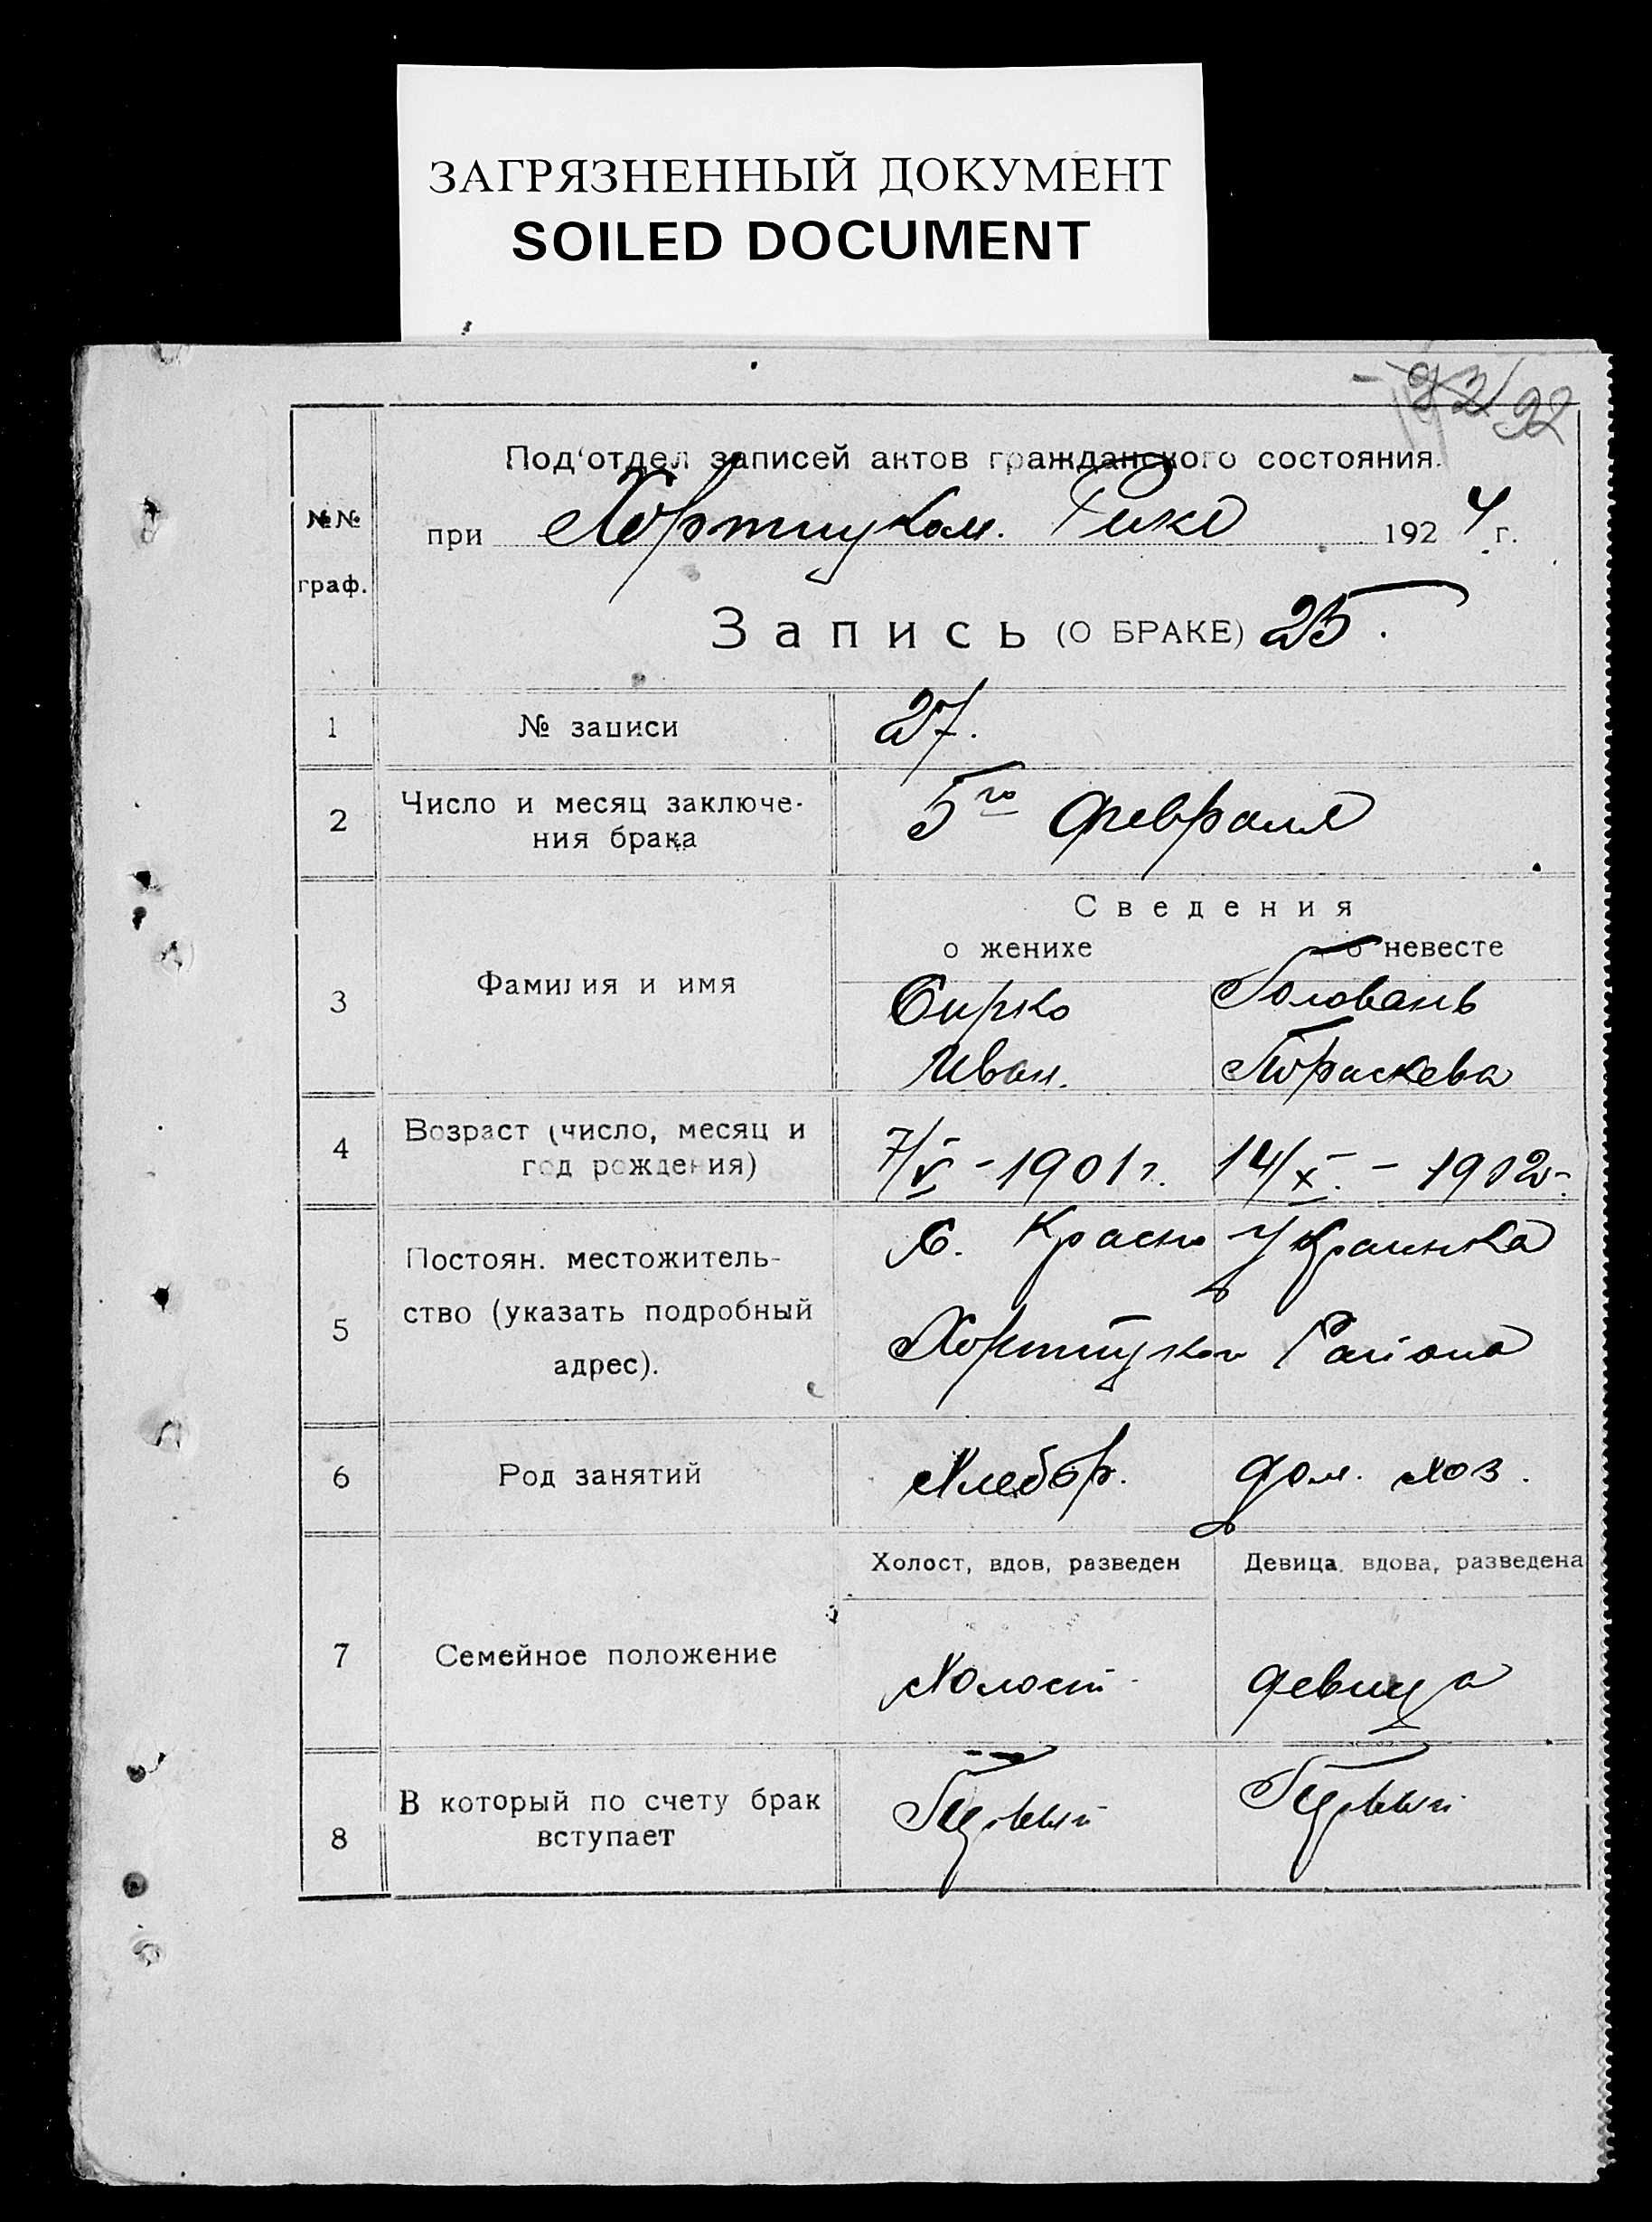 ЗАГРЯЗНЕННЫЙ ДОКУМЕНТ
SOILED DOCUMENT
92
№№ граф.
Под'отдел записей актов гражданского состояния.
при Хортицком. Рике 1924 г.
Запись (О БРАКЕ) 25.
1 № записи 27.
2 Число и месяц заключе-
ния брака 5го февраля
Сведения
о женихе о невесте
3 Фамилия и имя Сирко Головань
Иван. Параскева
4 Возраст (число, месяц и
год рождения) 7/V - 1901 г. 14/X. - 1902
5 Постоян. местожитель-
ство (указать подробный
адрес).
Х. Красно Украинка
Хортицкого Района
6 Род занятий Хлебор. дом. хоз.
Холост, вдов, разведен Девица, вдова, разведена
7 Семейное положение Холост девица
8 В который по счету брак
вступает Первый Первый